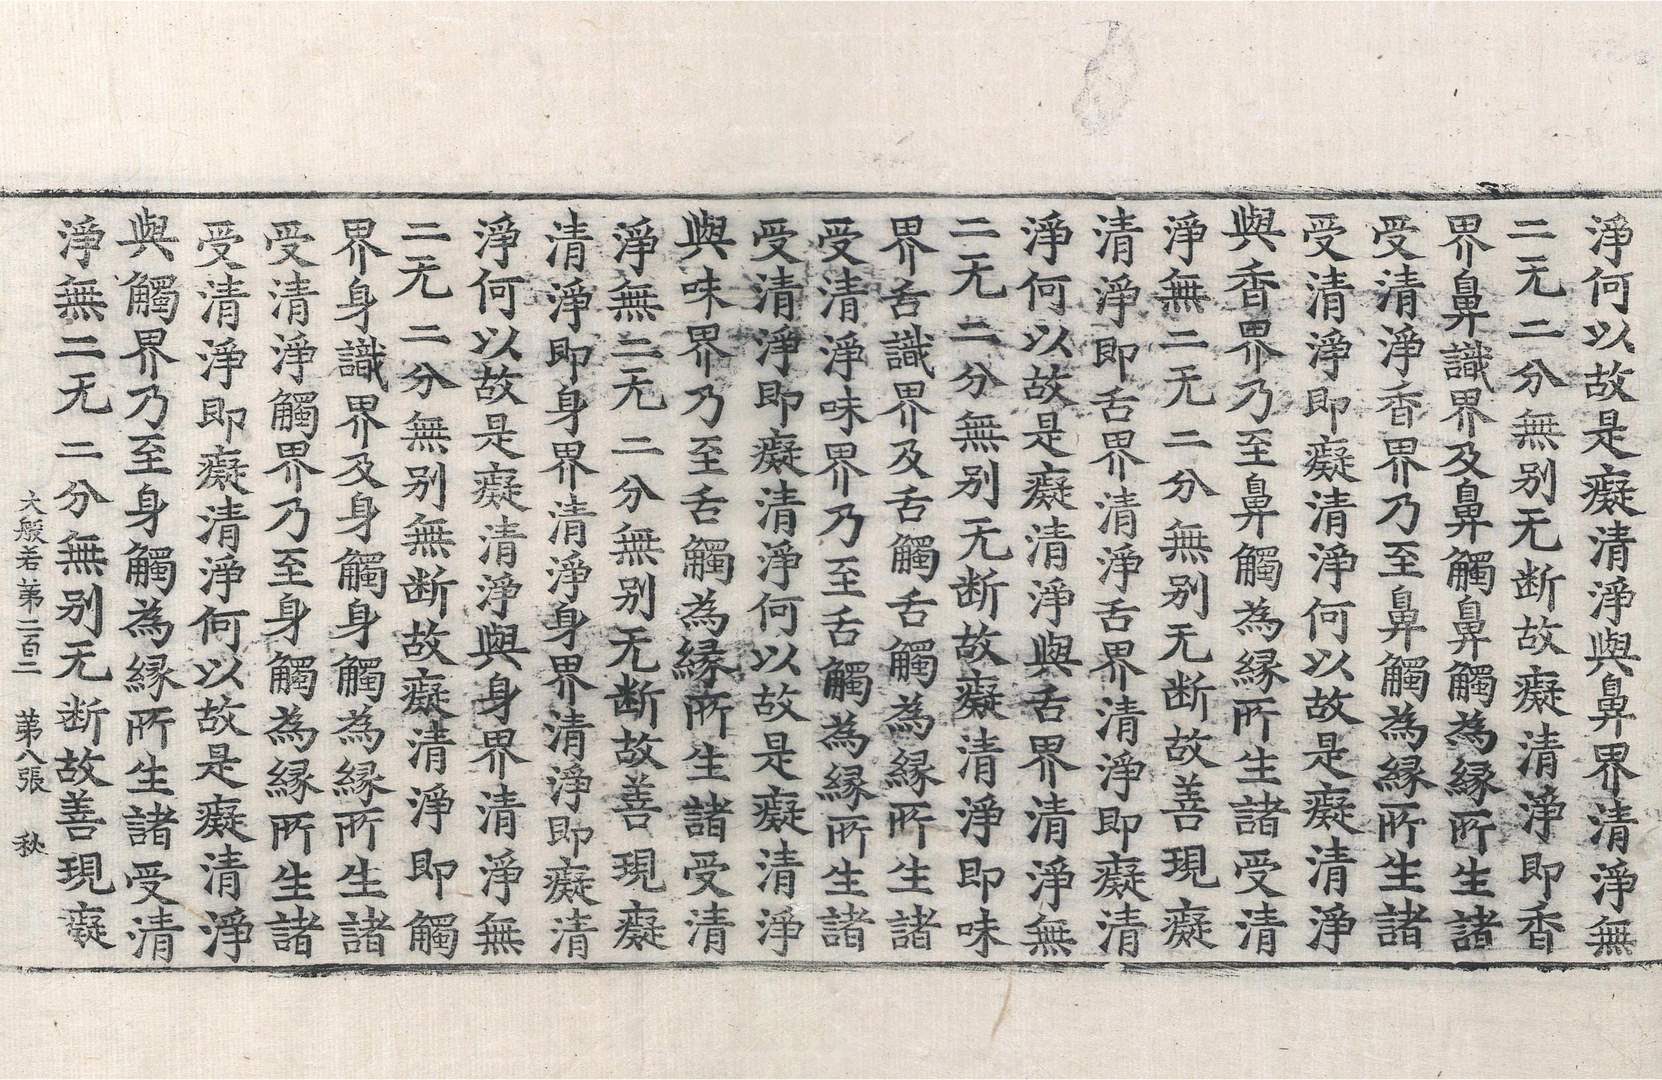 淨何以故是癡清淨與鼻界清淨無
二无二分無别无断故癡清淨即香
界鼻識界及鼻觸鼻觸為縁所生諸
受清淨香界乃至鼻觸為縁所生諸
受清淨即癡清淨何以故是癡清淨
與香界乃至鼻觸為縁所生諸受清
淨無二无二分無别无断故善現癡
清淨即舌界清淨舌界清淨即癡清
淨何以故是癡清淨與舌界清淨無
二无二分無别无断故癡清淨即味
界舌識界及舌觸舌觸為縁所生諸
受清淨味界乃至舌觸為縁所生諸
受清淨即癡清淨何以故是癡清淨
與味界乃至舌觸為縁所生諸受清
淨無二无二分無别无断故善現癡
清淨即身界清淨身界清淨即癡清
淨何以故是癡清淨與身界清淨無
二无二分無别無断故癡清淨即觸
界身識界及身觸身觸為縁所生諸
受清淨觸界乃至身觸為縁所生諸
受清淨即癡清淨何以故是癡清淨
與觸界乃至身觸為縁所生諸受清
淨無二无二分無别无断故善現癡
大般若第二百二 第八張 秋